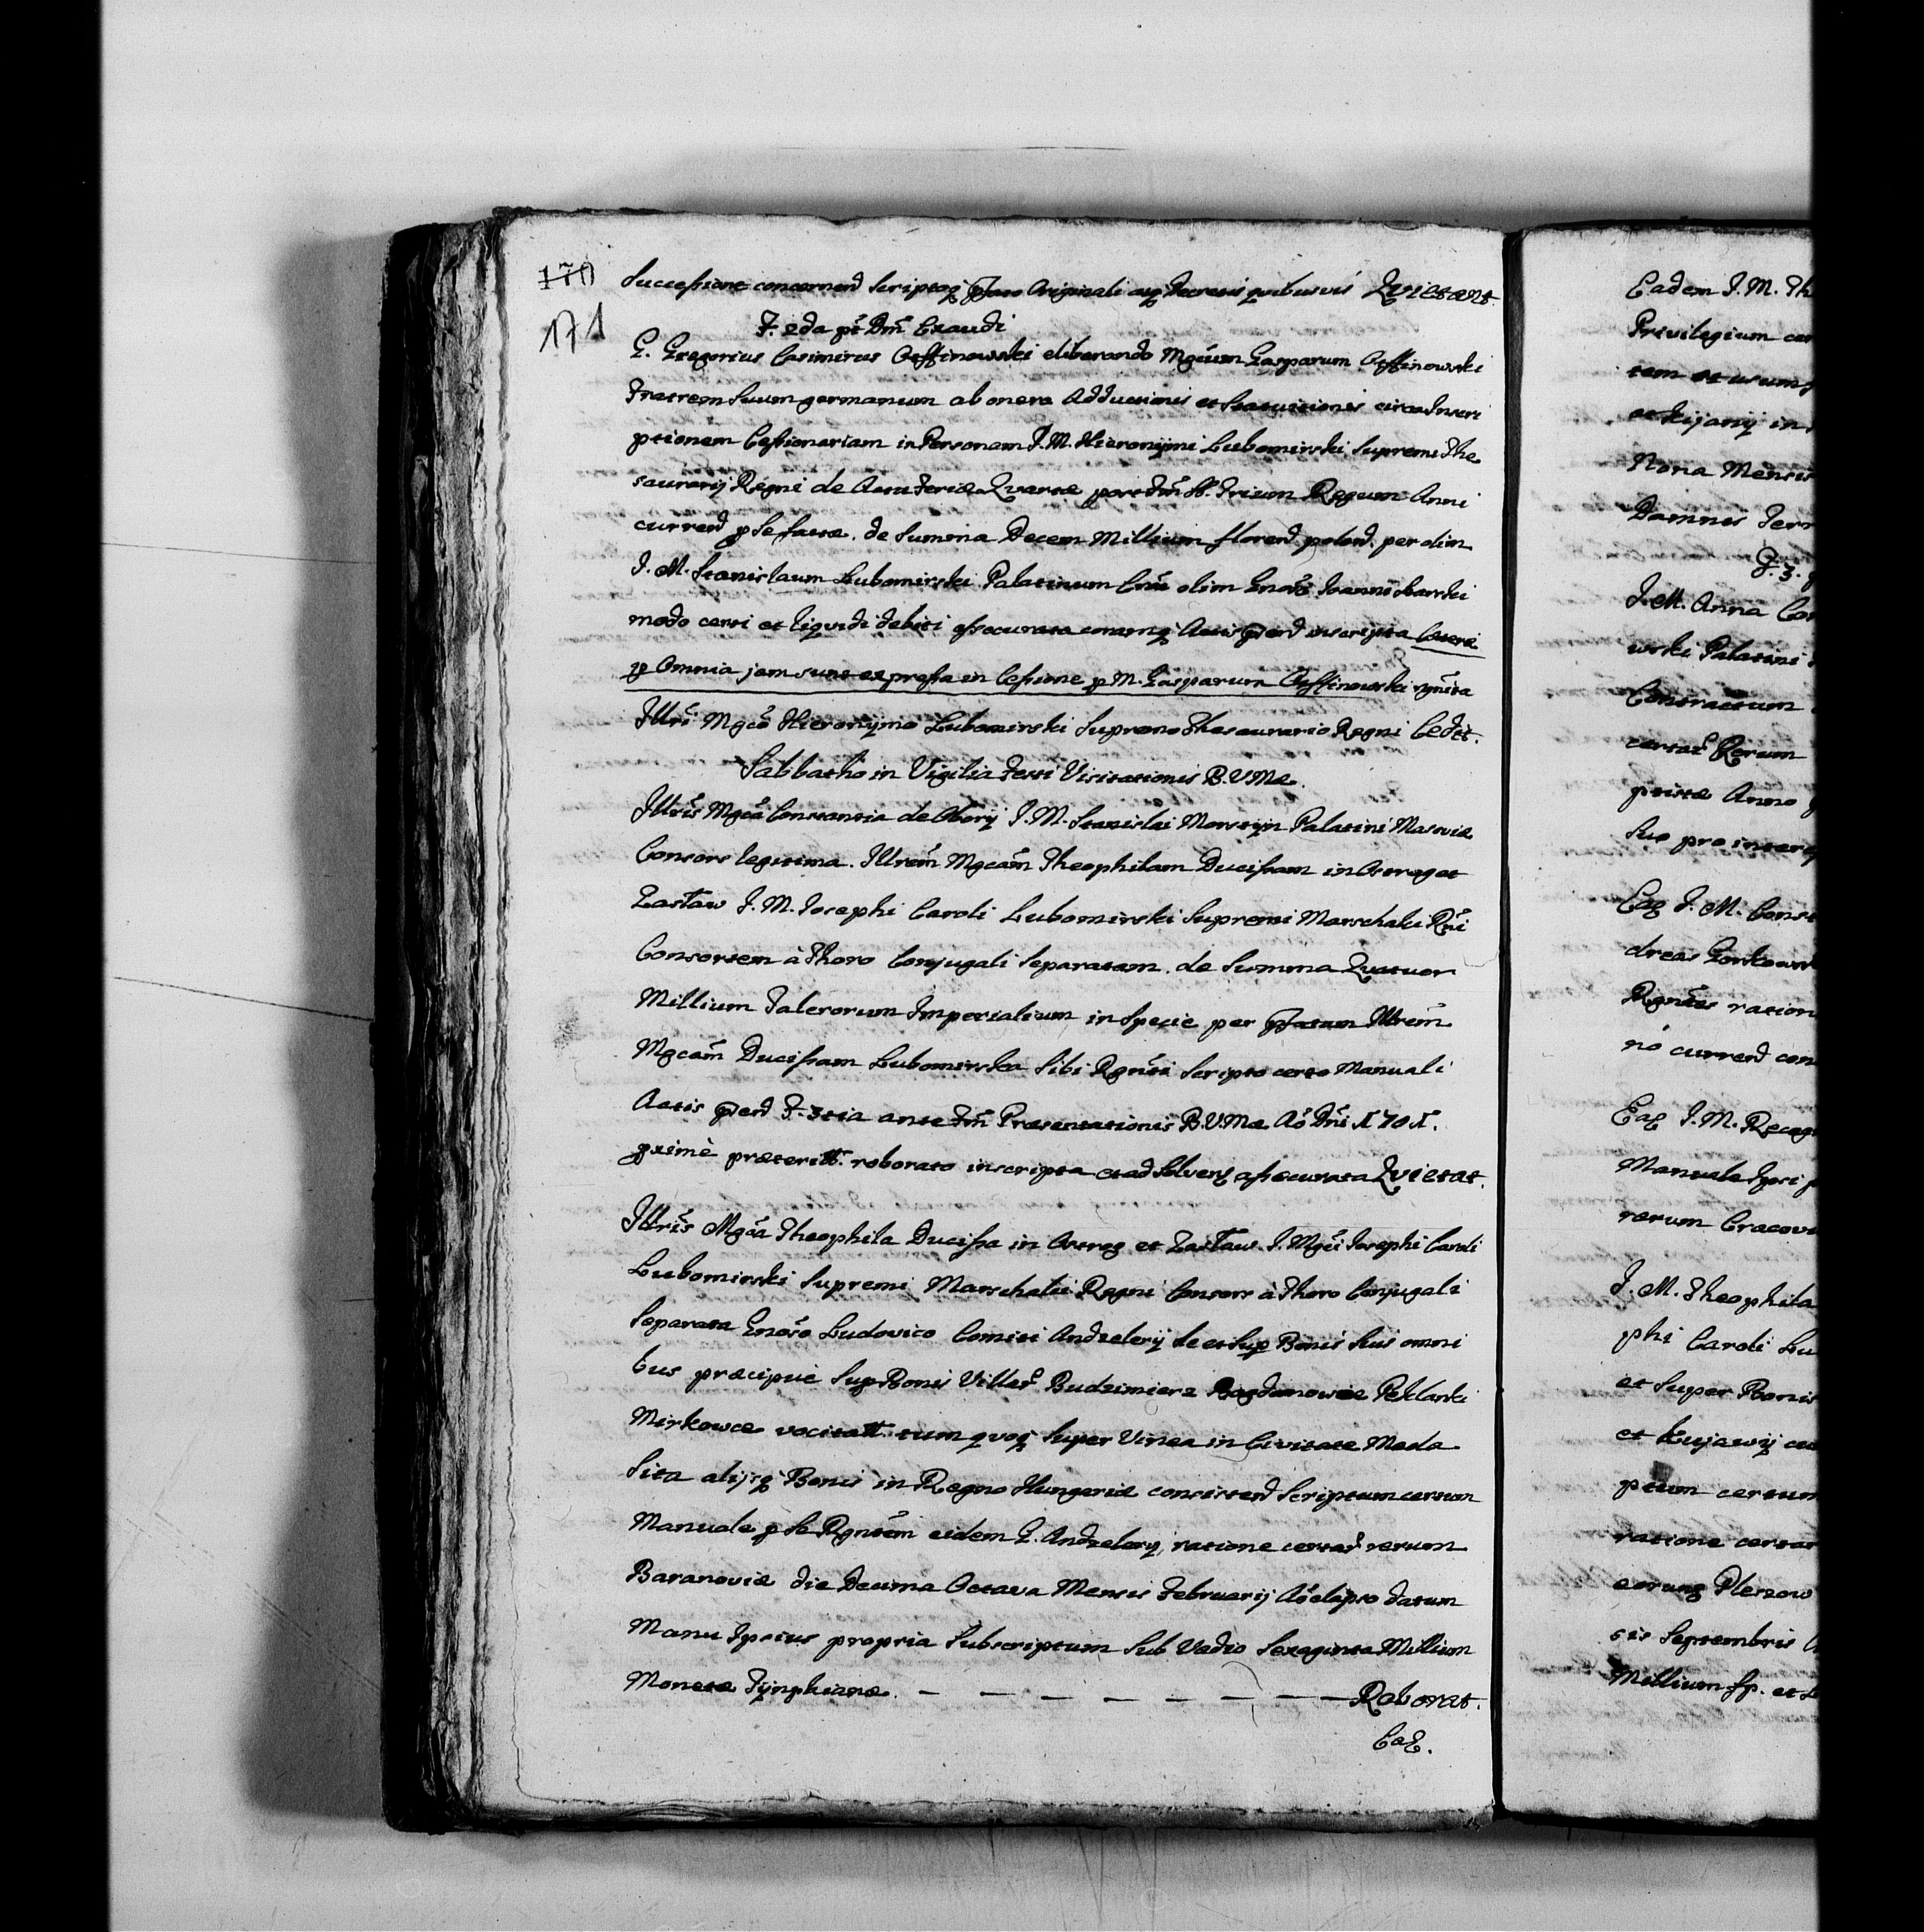 170
171
Successione concernen Scriptoq pfato Originali atq Decretis quibusvis Quietant.
F. 2da pt Dm Exaudi
G. Gregorius Casimirus Oeffinowski eliberando Mgcum Gasparum Oeffinowski
Fratrem Suum germanum ab onere Adductionis et Statuitionis circa Inscri
ptionem Cessionariam in Personam I. M. Hieronijmi Lubomirski Supremi The
saurarij Regni de Actu Feriæ Quartæ post Dm SS. Trium Regum Anni
curren p se factæ. de Summa Decem Millium floren polon. per olim
I. M. Stanislaum Lubomirski Palatinum olim Gnoso Joanni
modo certi et liquidi debiti assecurata Actis pren inscripta Cætera
p Omnia jam sunt expressa in Cessione p M. Gasparum Oeffinowski rgnita
Illri Mgco Hieronijmo Lubomirski Supremo Thesaurario Regni Cedit.
Sabbatho in Vigilia Festi Visitationis B.V.Mæ.
Illris Mgca Constantia de Obory I. M. Stanislai Morstijn Palatini Masoviæ
Consors legitima. Illrem Mgcam Theophilam Ducissam in Ostrog et
Zastaw I. M. Josephi Caroli Lubomirski Supremi Marschalci Rni
Consortem à Thoro Conjugali Separatam. de Summa Quatuor
Millium Talerorum Imperialium in Specie per pfatam Illrem
Mgcam Ducissam Lubomirska Sibi Rgnti Scripto certo Manuali
Actis pren F. 3tia ante Dm Præsentationis B.V.Mæ Ao Dni 1701.
pximè præteritt. roborato inscripta et ad Solven assecurata Quietat.
Illris Mgca Theophila Ducissa in Ostrog et Zastaw I. Mgci Josephi Caroli
Lubomirski Supremi Marschalci Regni Consors à Thoro Conjugali
Separata Gnoso Ludovico Comiti Andzelerij de et Sup Bonis Suis omni
bus præcipuè Sup Bonis Villar Budzimierz Bogdanowce Peklanki
Mirkowce vocitatt. tum quoq Super Vinea in Civitate Mada
Sita alijsq Bonis in Regno Hungariæ consisten Scriptum certum
Manuale p Se Rgntem eidem G. Andzelerij, ratione certar rerum
Baranoviæ die Decima Octava Mensis Februarij Ao elapso datum
Manu Ipsius propria Subscriptum Sub Vadio Sexaginta Millium
Monetæ Tijnphianæ. — — — — — — — — Roborat.
Ead.
Eadem I. M. Th
Privilegium cer
tem et usum
Nona Mensis
F. 3.
I. M. Anna Con
wski Palatini
Contractum
certar Rerum
Anno
Suo pro
Eaq I. M. Const
dreas
ration
no curren con
Eaq I. M. Recog
Manuale
rerum Cracovi
I. M. Theophila
phi Caroli Lu
et Super Bonis
et
ptum certum
ratione certar
sis Septembris
Millium fp. et